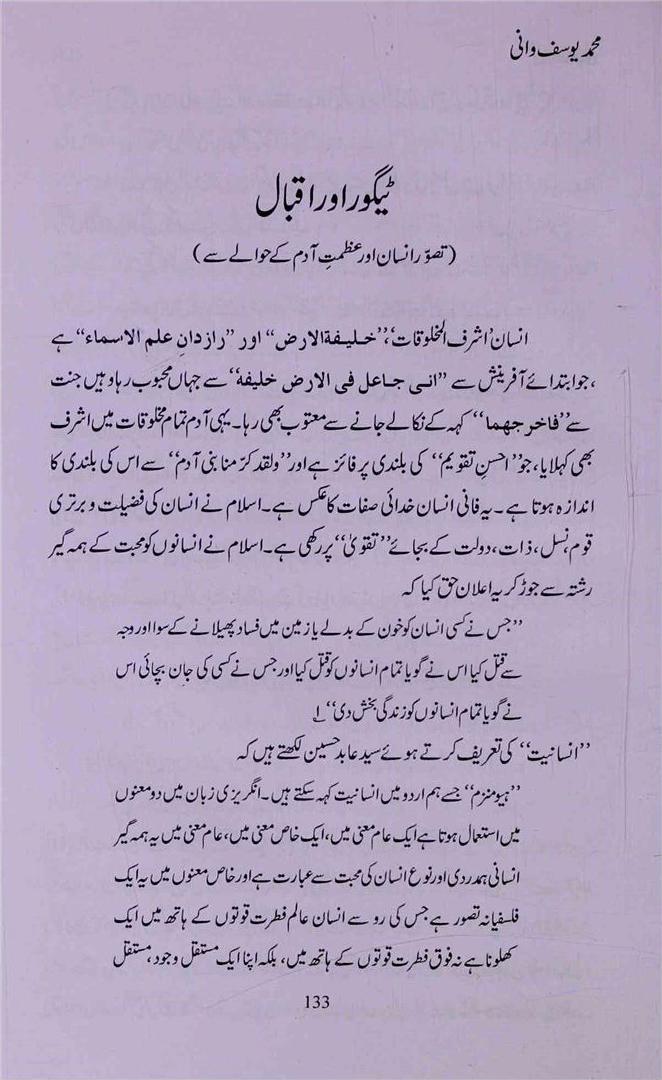 محمد یوسف وانی
ٹیگور اور اقبال
(تصوّر انسان اور عظمتِ آدم کے حوالے سے)
انسان ’اشرف المخلوقات‘، ”خلیفۃ الارض“ اور ”رازدانِ علم الاسماء“ ہے
،جو ابتدائے آفرینش سے ”انی جاعل فی الارض خلیفہ“ سے جہاں محبوب رہا وہیں جنت
سے ”فاخرجھما“ کہہ کے نکالے جانے سے معتوب بھی رہا۔ یہی آدم تمام مخلوقات میں اشرف
بھی کہلایا، جو ”احسنِ تقویم“ کی بلندی پر فائز ہے اور ”ولقد کرّمنا بنی آدم“ سے اس کی بلندی کا
اندازہ ہوتا ہے۔ یہ فانی انسان خدائی صفات کا عکس ہے۔ اسلام نے انسان کی فضیلت و برتری
قوم، نسل، ذات، دولت کے بجائے ”تقویٰ“ پر رکھی ہے۔ اسلام نے انسانوں کو محبت کے ہمہ گیر
رشتہ سے جوڑ کر یہ اعلان حق کیا کہ
”جس نے کسی انسان کو خون کے بدلے یا زمین میں فساد پھیلانے کے سوا اور وجہ
سے قتل کیا اس نے گویا تمام انسانوں کو قتل کیا اور جس نے کسی کی جان بچائی اس
نے گویا تمام انسانوں کو زندگی بخش دی“ ۱؎
”انسانیت“ کی تعریف کرتے ہوئے سید عابد حسین لکھتے ہیں کہ
”ہیومنزم“ جسے ہم اردو میں انسانیت کہہ سکتے ہیں۔ انگریزی زبان میں دو معنوں
میں استعمال ہوتا ہے ایک عام معنی میں، ایک خاص معنی میں، عام معنی میں یہ ہمہ گیر
انسانی ہمدردی اور نوع انسان کی محبت سے عبارت ہے اور خاص معنوں میں یہ ایک
فلسفیانہ تصور ہے جس کی رو سے انسان عالم فطرت قوتوں کے ہاتھ میں ایک
کھلونا ہے نہ فوق فطرت قوتوں کے ہاتھ میں، بلکہ اپنا ایک مستقل وجود، مستقل
133